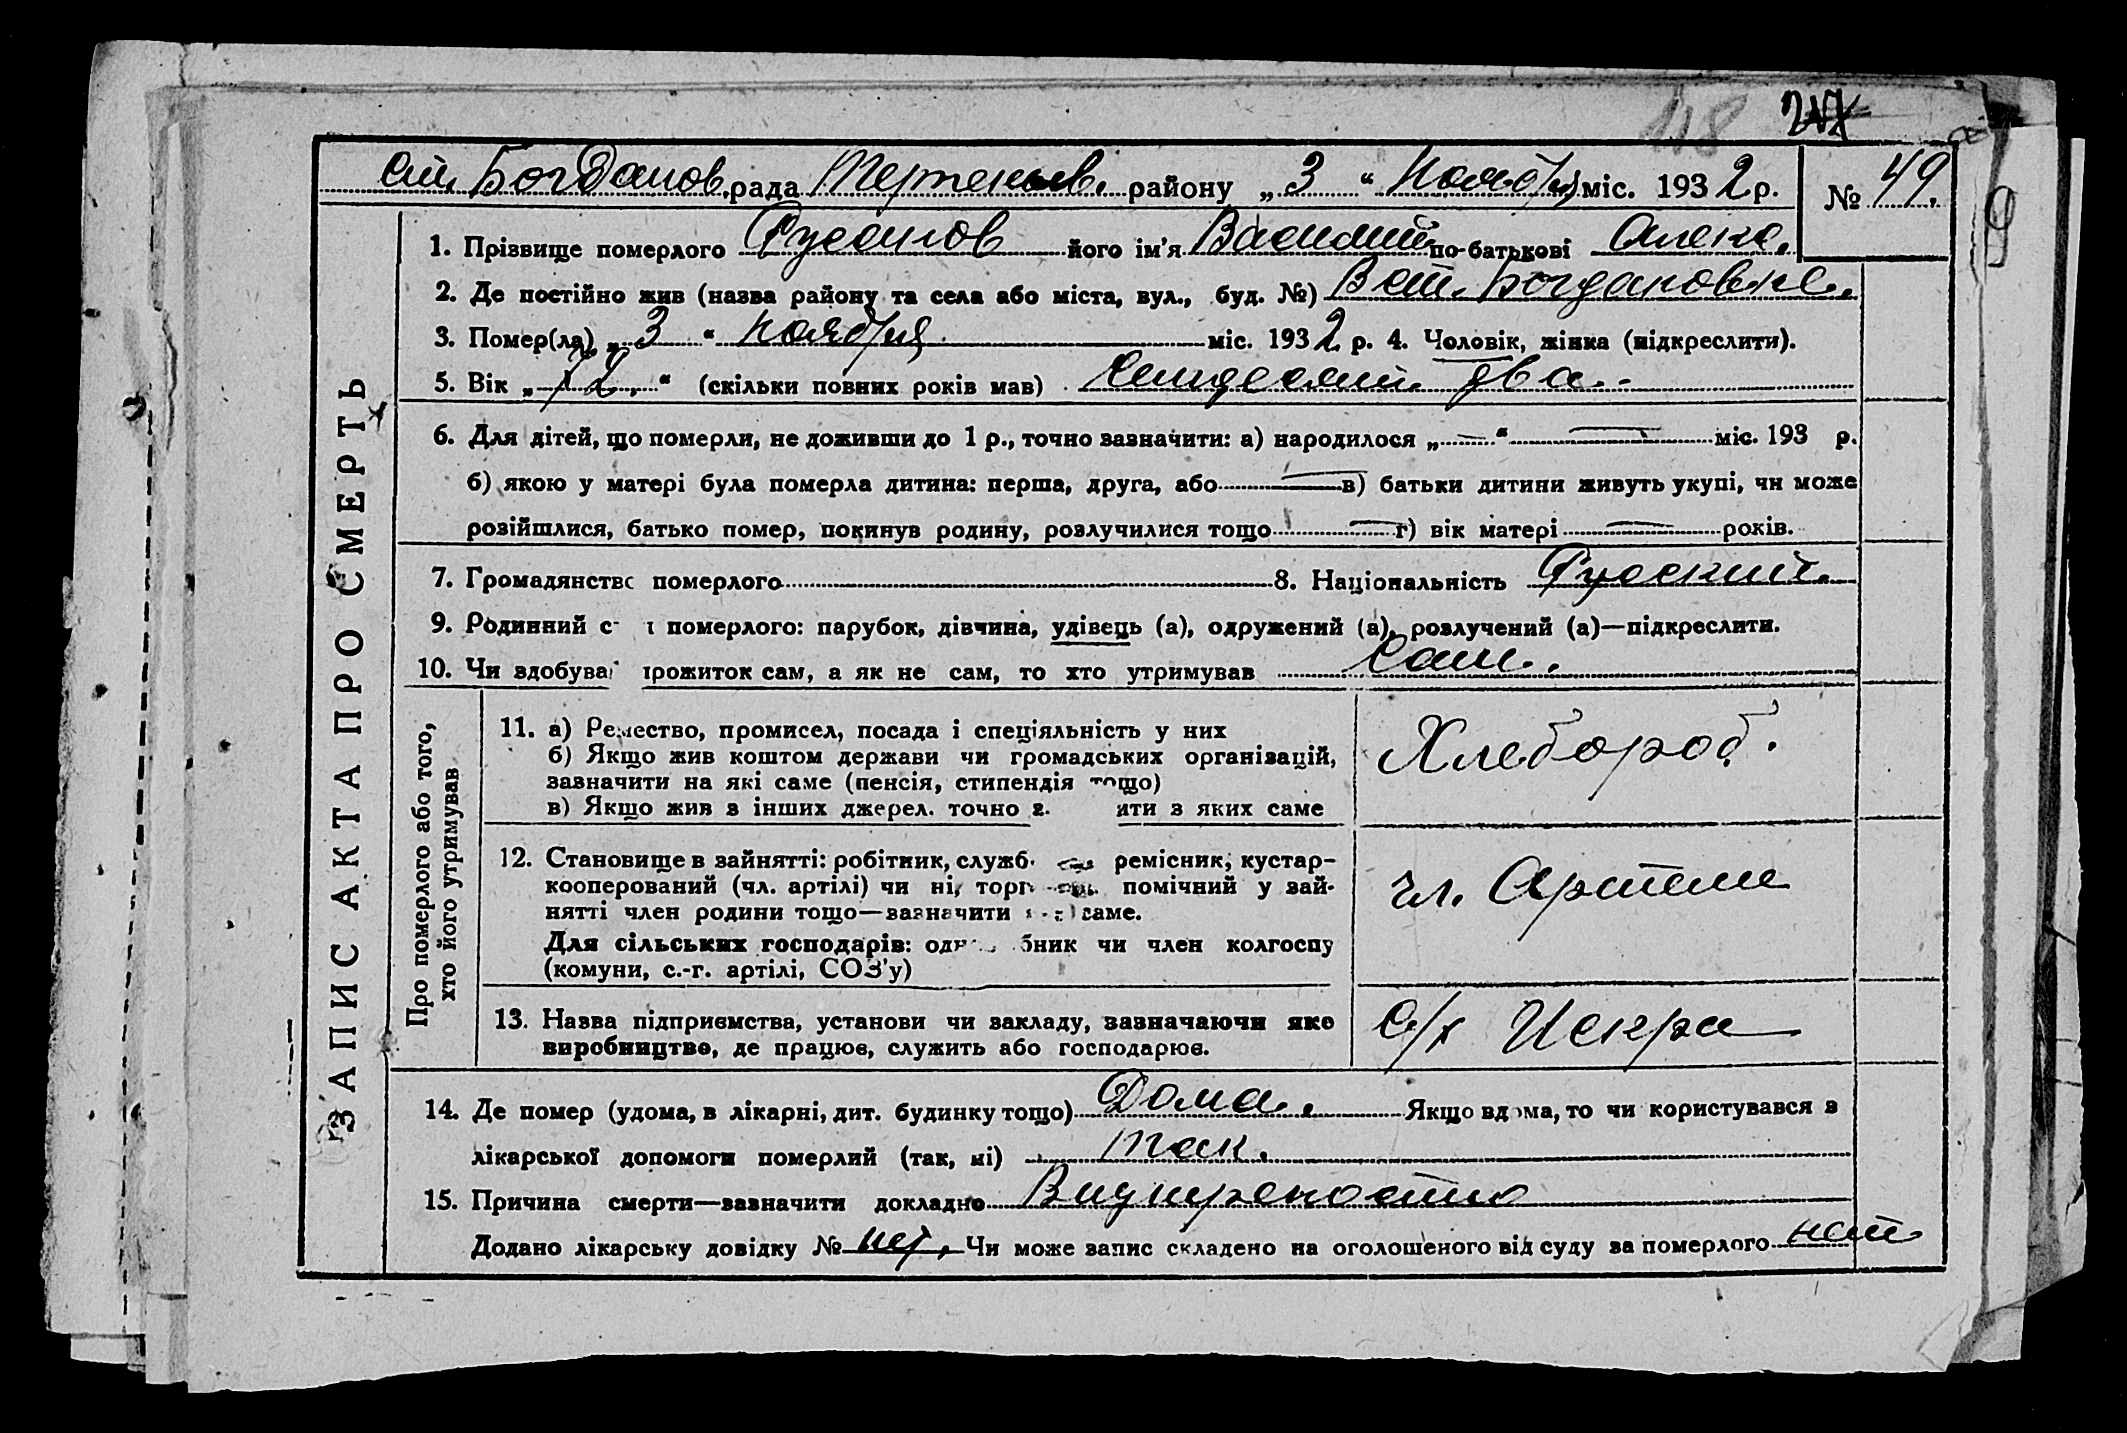 118
№ 49.
Ст. Богданов. рада Терпеньев. району „3“ Ноября міс. 1932 р.
ЗАПИС АКТА ПРО СМЕРТЬ
1. Прізвище померлого Русанов його ім'я Василий по-батькові Алекс.
2. Де постійно жив (назва району та села або міста, вул., буд. №) В ст. Богдановке.
3. Помер(ла) „3“ ноября міс. 1932 р. 4. Чоловік, жінка (підкреслити).
5. Вік „72.“ (скільки повних років мав) Семдесят два.
6. Для дітей, що померли, не доживши до 1 р., точно зазначити: а) народилося „—“ — міс. 193 р.
б) якою у матері була померла дитина: перша, друга, або — в) батьки дитини живуть укупі, чи може
розійшлися, батько помер, покинув родину, розлучилися тощо — г) вік матері — років.
7. Громадянство померлого 8. Національність Русский.
9. Родинний с і померлого: парубок, дівчина, удівець (а), одружений (а), розлучений (а)—підкреслити.
10. Чи здобував прожиток сам, а як не сам, то хто утримував Сам.
Про померлого або того,
хто його утримував
11. а) Ремество, промисел, посада і спеціяльність у них
б) Якщо жив коштом держави чи громадських організацій,
зазначити на які саме (пенсія, стипендія тощо)
в) Якщо жив з інших джерел. точно з ити з яких саме
Хлебороб.
12. Становище в зайнятті: робітник, служб ремісник, кустар-
кооперований (чл. артілі) чи ні, торг помічний у зай-
нятті член родини тощо—зазначити саме.
Для сільських господарів: одн бник чи член колгоспу
(комуни, с.-г. артілі, СОЗ'у)
чл. Артели
13. Назва підприємства, установи чи закладу, зазначаючи яке
виробництво, де працює, служить або господарює.
С/х Искра
14. Де помер (удома, в лікарні, дит. будинку тощо) Дома. Якщо вдома, то чи користувався з
лікарської допомоги померлий (так, ні) так.
15. Причина смерти—зазначити докладно
Додано лікарську довідку № нет. Чи може запис складено на оголошеного від суду за померлого нет